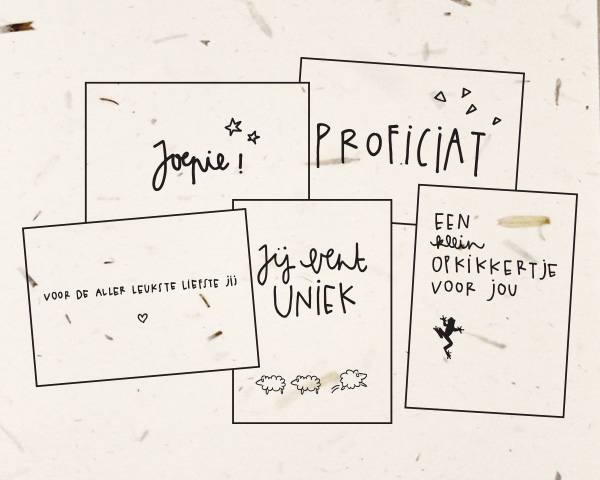 Joepie!
PROFICIAT
VOOR DE ALLER LEUKSTE LIEFSTE JIJ
Jij bent
UNIEK
EEN
klein
OPKIKKERTJE
VOOR JOU